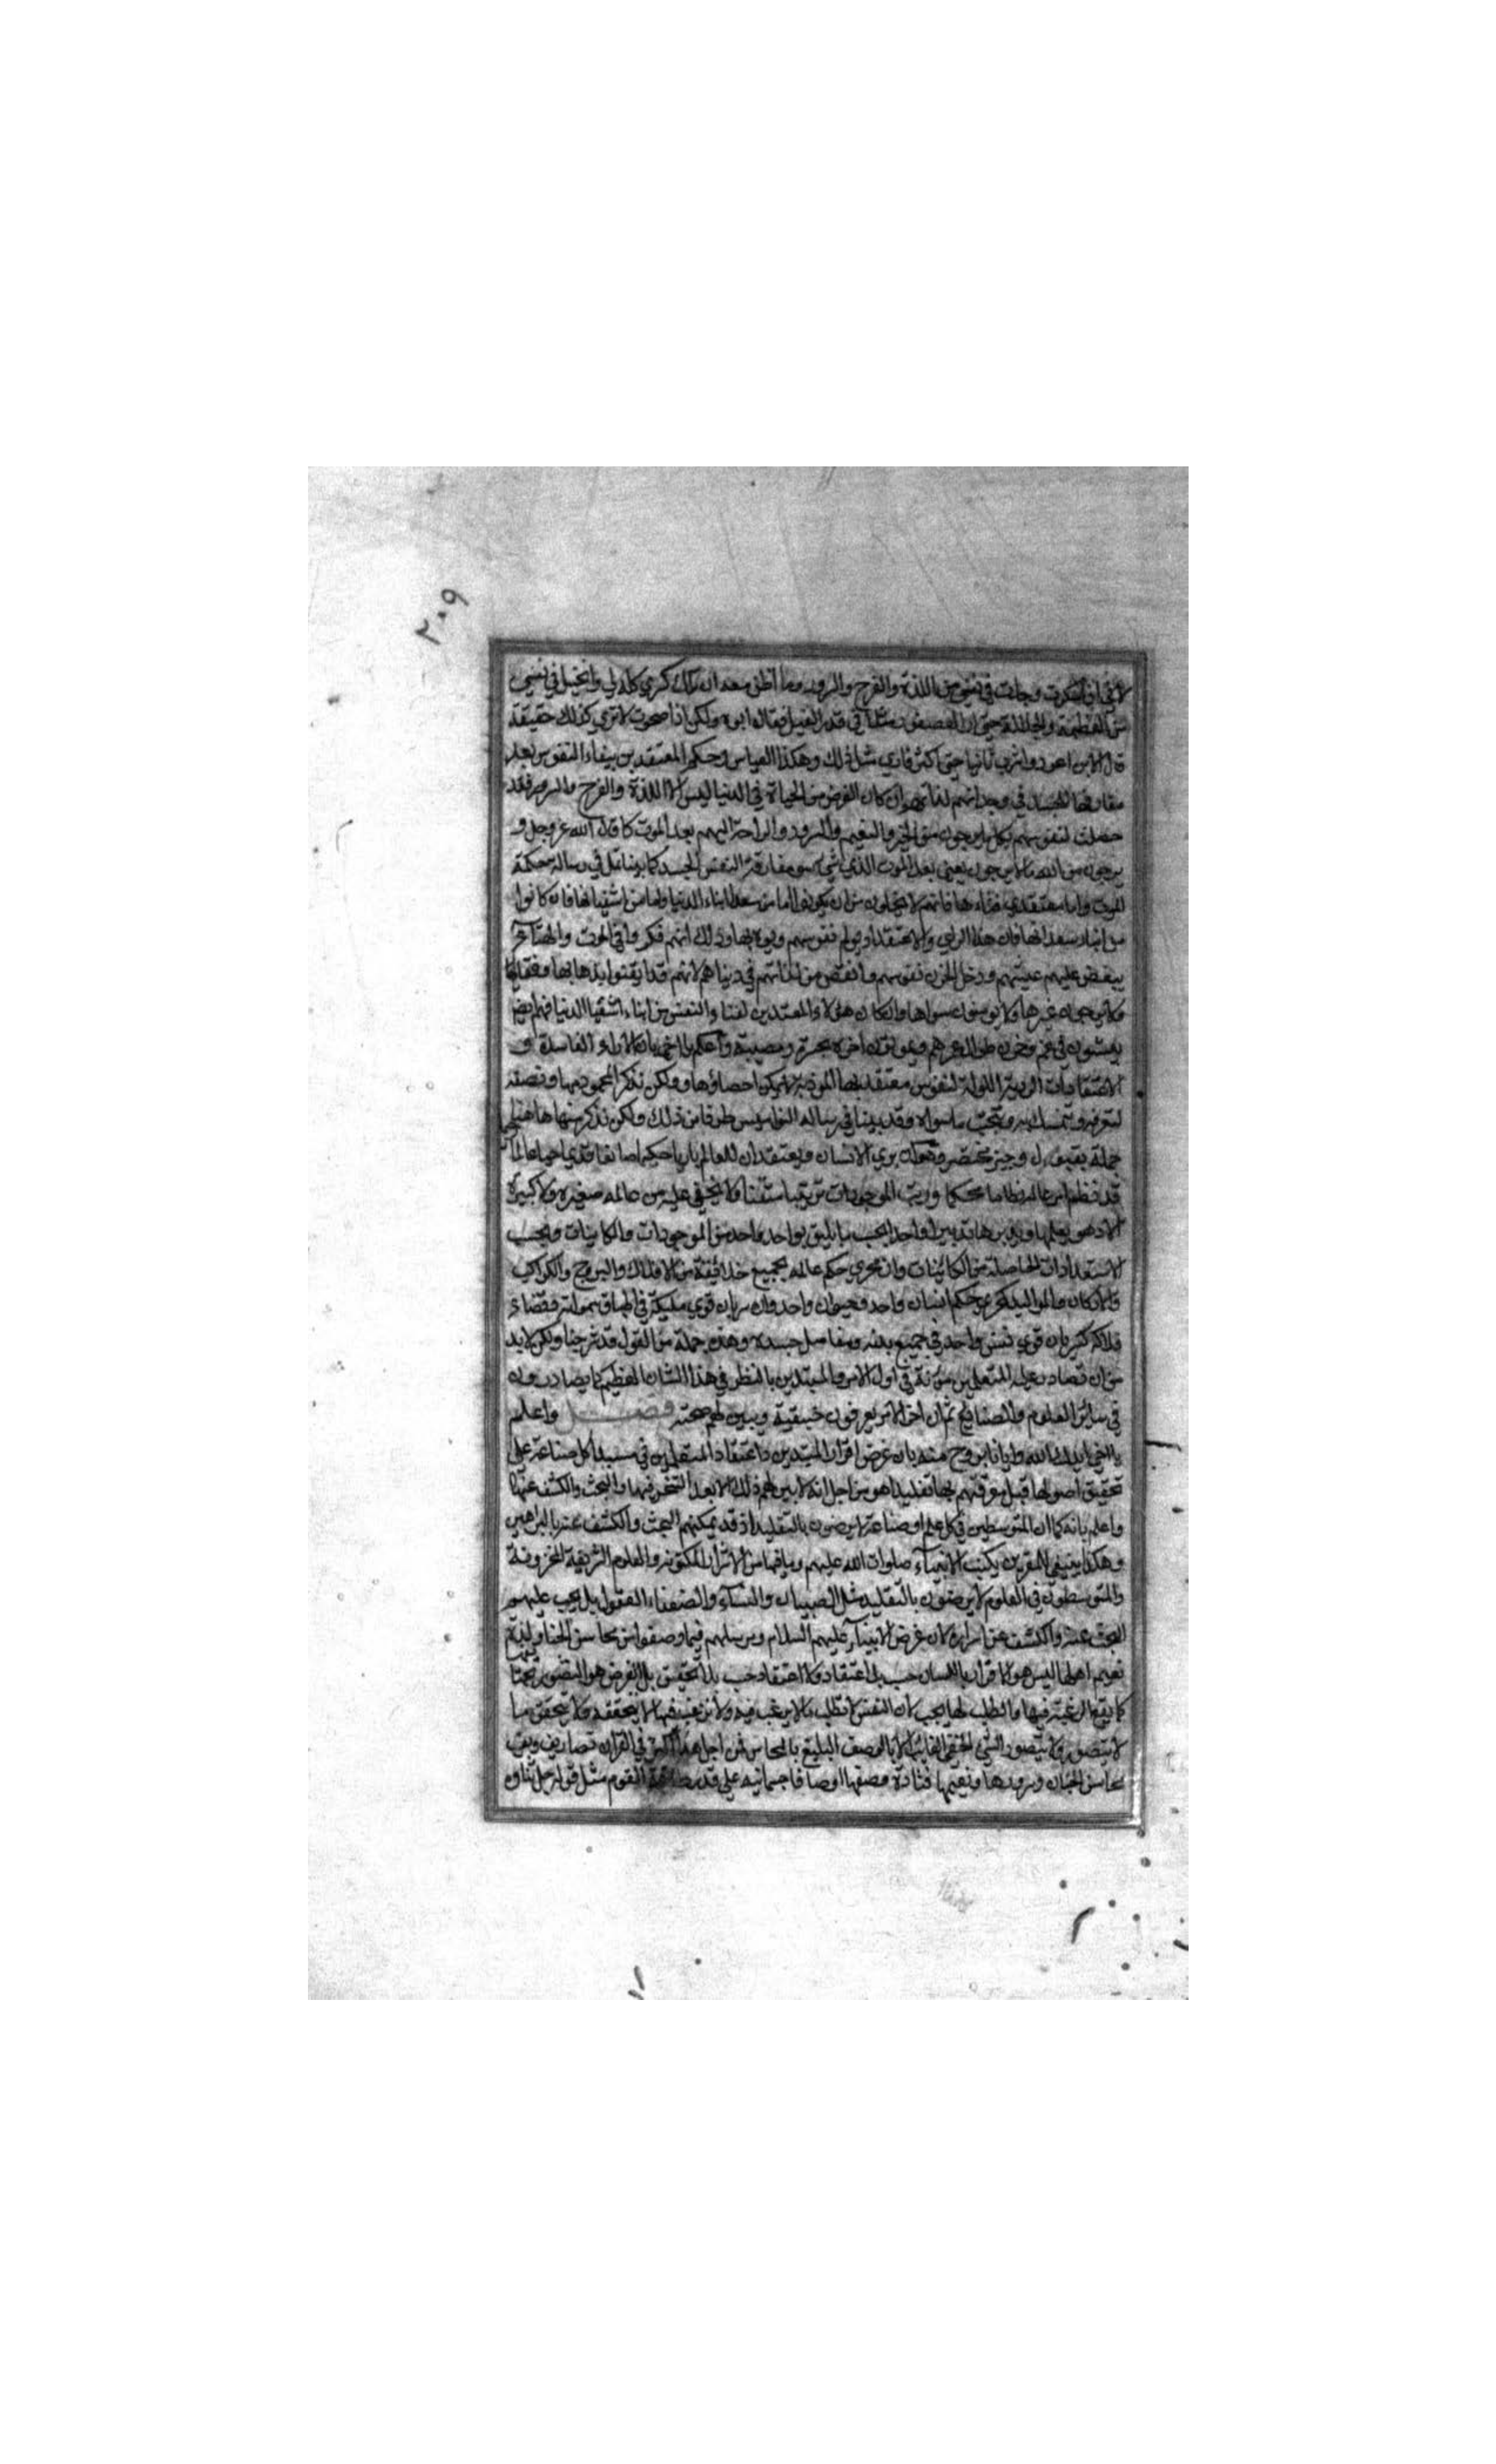 ٢٠٩
لاني اذا سكرت وجدت في نفسي من اللذة والفرح والسرور وما اظن معه ان ملك كسري كله لي واتخيل في نفسي
من العظمة والجلالة حتى ان العصفور مثلا في قدر الفيل فقال ابوه ولكن اذا صحوت لا تري كذلك حقيقة
قال الابن اعود واشرب ثانيا حتى اسكر فاري مثل ذلك وهكذا القياس في حكم المعتقدين ببقاء النفوس بعد
مفارقتها الجسد في وجدانهم لذاتهم وان كان الغرض من الحياة في الدنيا ليس الا اللذة والفرح والسرور فقد
حصلت لنفوسهم بكل ما يرجون من الخير والنعيم والسرور والراحة اليهم بعد الموت كما قال الله عز وجل و
يرجون من الله ما لا يرجون يعني بعد الموت الذي هو مفارقة النفس الجسد كما بينا قبل في رسالة حكمة
الموت واما معتقدي فناءها فانهم لا يخلون من ان يكونوا اما من سعدا ابناء الدنيا واما من اشقيائها فان كانوا
من ابناء سعدائها فان هذا الراي والاعتقاد يولم نفوسهم ويوذيها وذلك انهم فكروا في الموت والفناء
ينغص عليهم عيشهم ودخل الحزن نفوسهم وانغص من لذاتهم في دنياهم لانهم قد ايقنوا بذهابها وفقدانها
ولا يرجون غيرها ولا يومنون سواها وان كان هولاء المعتقدين لفناء النفس من ابناء اشقيا الدنيا فهم ايضا
يعيشون في غم وحزن طول عمرهم ويموتون اخره بحسرة ومصيبة واعلم يا اخي بان الاراء الفاسدة و
الاعتقادات الردية المولمة لنفوس معتقديها الموذية لا يمكن احصاؤها ولكن نذكر المحمود منها ونصفه
لتعرفه وتتمسك به وتتجنب ما سواه وقد بينا في رسالة النواميس طرفا من ذلك ولكن نذكر منها هاهنا
جملة بقول وجيز مختصر وهو ان يري الانسان ويعتقد ان للعالم باريا حكيما صانعا قديا حيا عالما
قد نظم امر عالمه نظاما محكما ورتب الموجودات ترتيبا متقنا ولا يخفي عليه من عالمه صغيرة ولا كبيرة
الا وهو يعلمها ويدبرها تدبيرا واحدا بحسب ما يليق بواحد واحد من الموجودات والكاينات وبحسب
الاستعدادات الحاصلة من الكائنات وان مجري حكم عالمه بجميع خلائقه من الافلاك والبروج والكواكب
والاركان والمواليد كمجري حكم انسان واحد وحيوان واحد وان سريان قوي مليكة في اطباق سمواته وفضاء
افلاكه كسريان قوي نفس واحد في جميع بدنه ومفاصل جسده وهذه جملة من القول قد شرحنا ولكن لابد
من ان تصادر عليه المتعلمين مؤنة في اول الامر والمبتدين بالنظر في هذا الشان العظيم كما يصادرون
في سائر العلوم والصنائع ثم ان اخر الامر يعرفون حقيقته ويبين لهم صحته فصل واعلم
يا اخي ايدك الله وايانا بروح منه بان غرض اقرار المبتدين واعتقاد المتعلمين في مبدا كل صناعة على
تحقيق اصولها قبل معرفتهم بها تقليدا هو من اجل انه لا يبين لهم ذلك الا بعد التبحر فيها والبحث والكشف عنها
واعلم بانه كما ان المتوسطين في كل علم او صناعة لا يرضون بالتقليد اذ قد يمكنهم البحث والكشف عنه بالبراهين
وهكذا ينبغي للمقرين بكتب الانبياء صلوات الله عليهم وما فيها من الاسرار المكنونه والعلوم الشريفة المخزونة
والمتوسطون في العلوم لا يرضون بالتقليد مثل الصبيان والنساء والضعفاء العقول بل يجب عليهم
البحث عنه والكشف عن اسراره لان غرض الانبياء عليهم السلام ومرسلهم فيما وصفوا من محاسن الجنان ولذة
نعيم اهلها ليس هو الاقرار باللسان حسب بل اعتقاد ولا اعتقاد حسب بلا تحقيق بل الغرض هو التصور بحقها
كما يقع الرغبة فيها والطلب لها يجب لان النفس لا تطلب ما لا يرغب فيه ولا ترغب فيما لا يتحققه ولا يتحقق ما
لا يتصور ولا يتصور الشي الخفي الغائب الا بالوصف البليغ بالمحاسن فمن اجل هذا اكثر في القران تصاريف وصف
محاسن الجنان وسرورها ونعيمها فتارة وصفها اوصافا جسمانية على قدر القوم مثل قوله جل ثناؤه